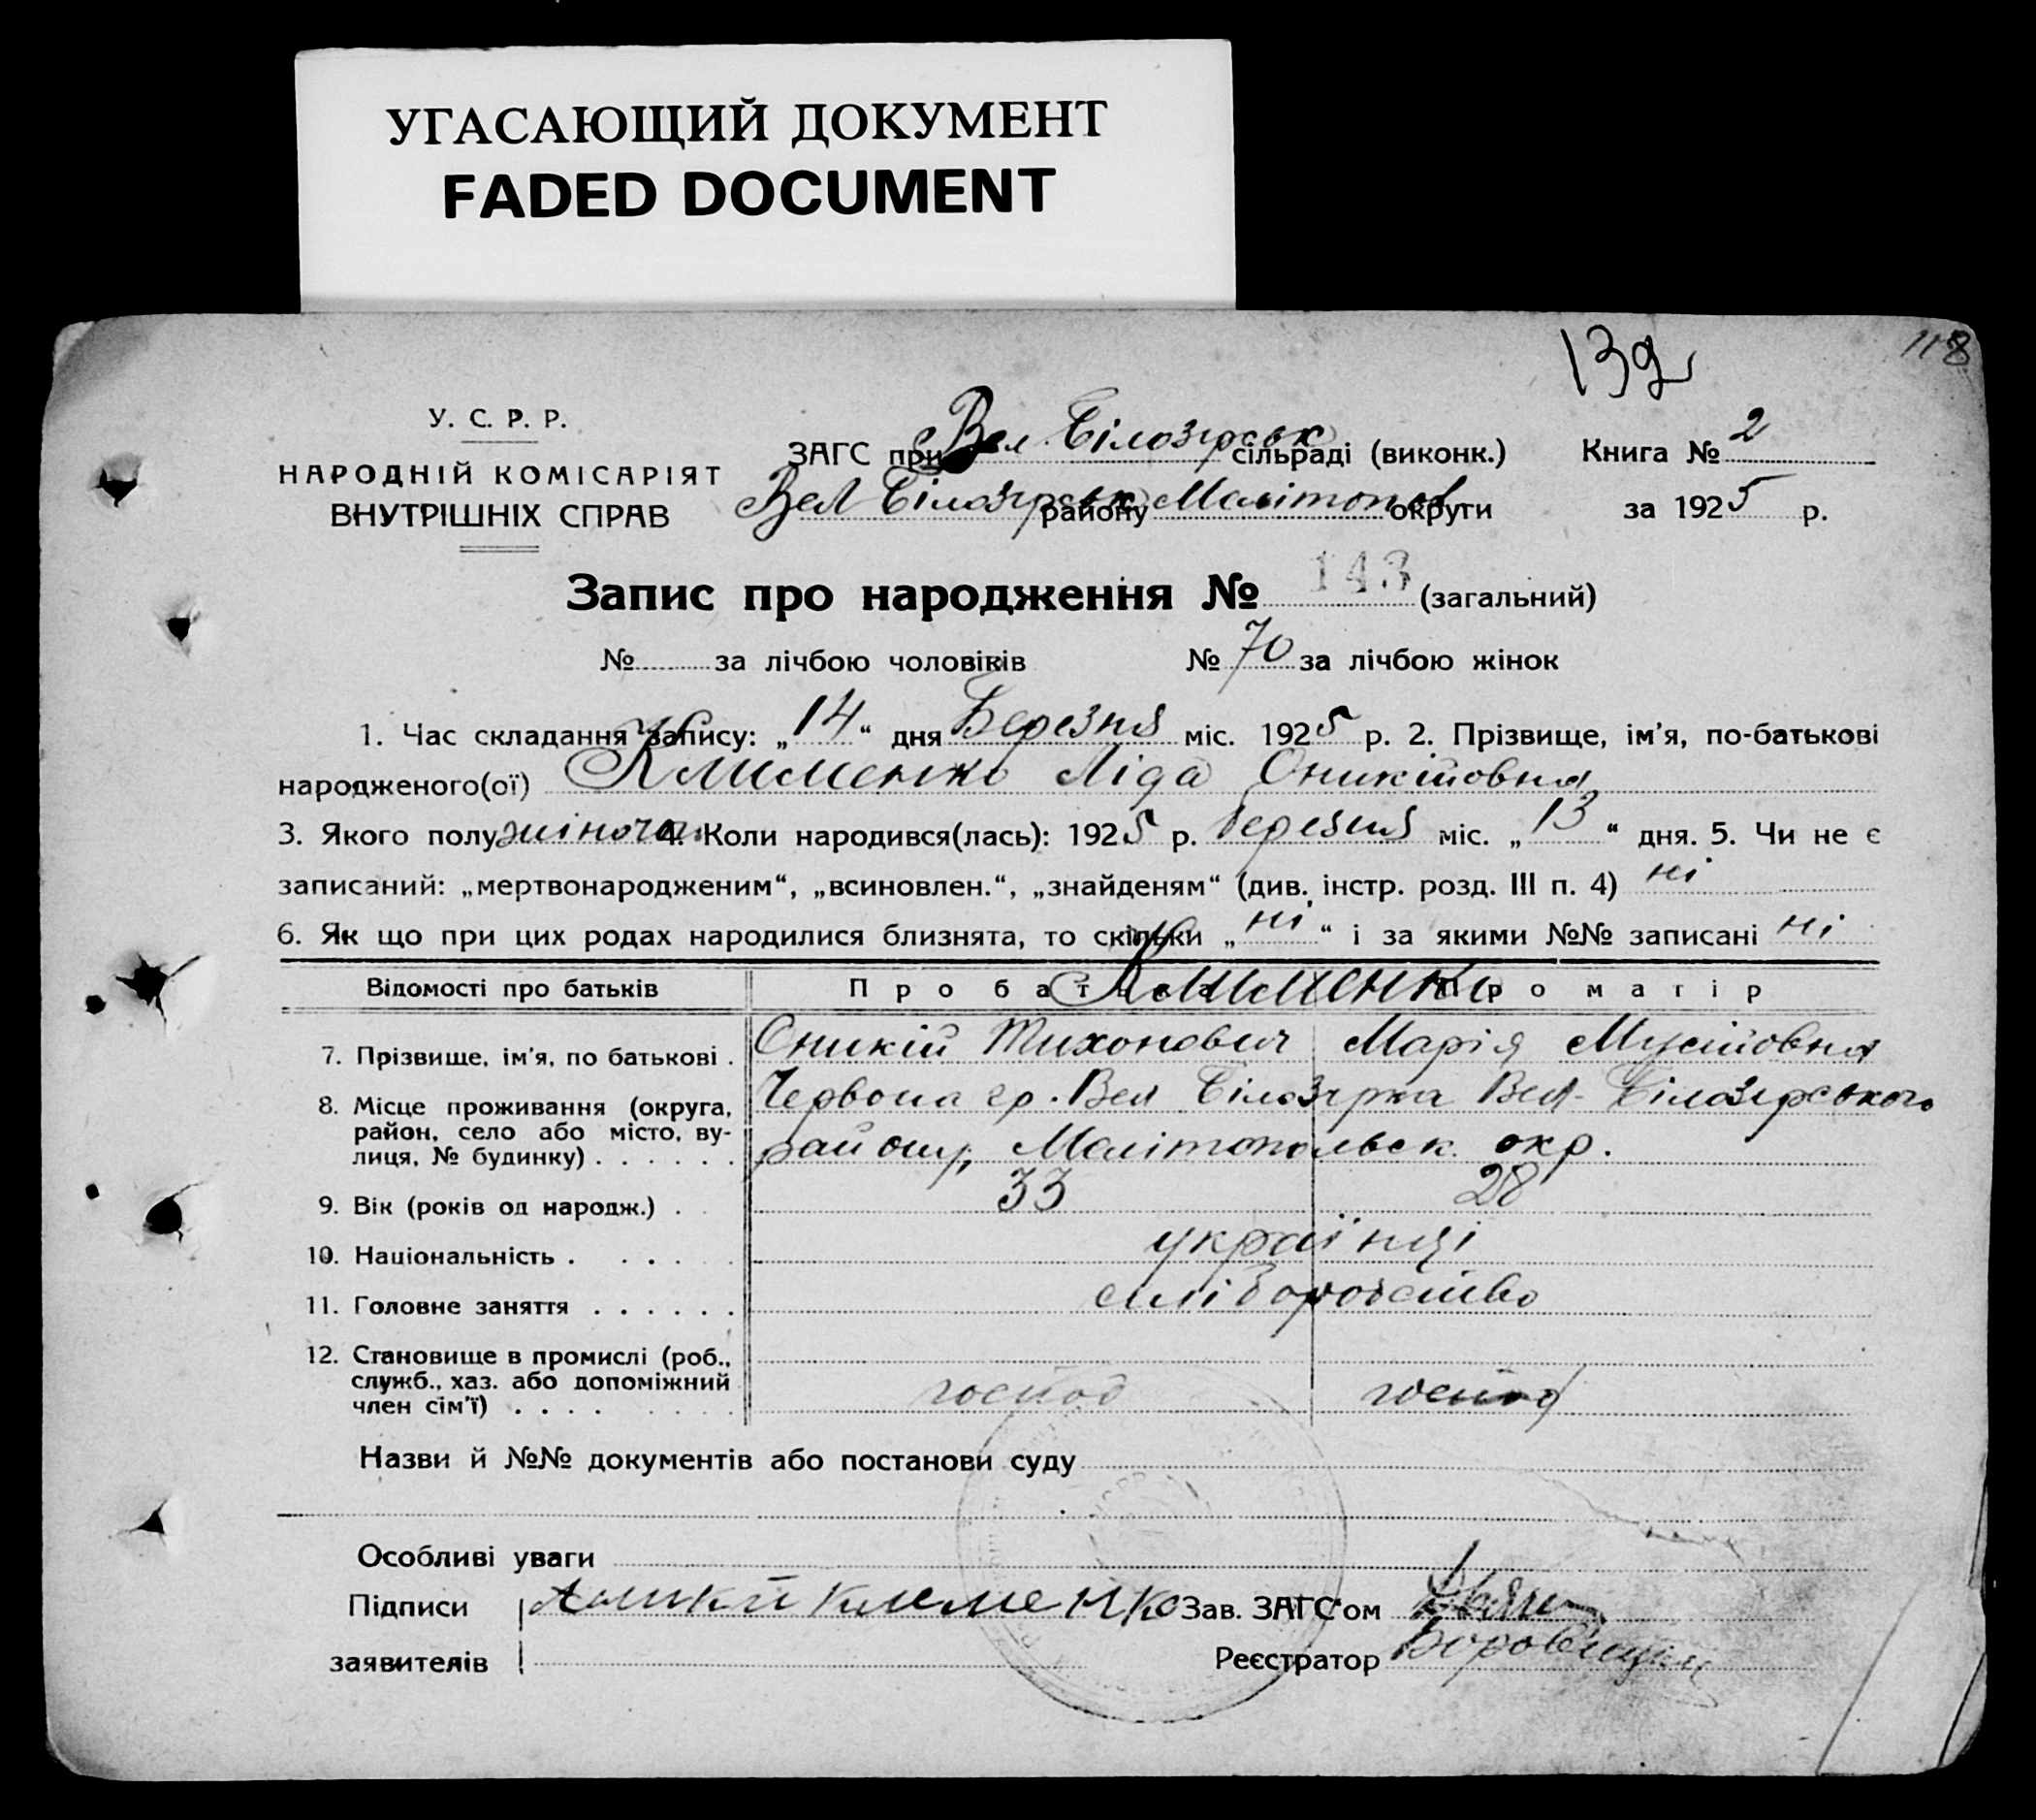 УГАСАЮЩИЙ ДОКУМЕНТ
FADED DOCUMENT
139
118
У. С. Р. Р.
НАРОДНІЙ КОМІСАРІЯТ
ВНУТРІШНІХ СПРАВ
ЗАГС при Вел. Білозірськ сільраді (виконк.)
Вел Білозірськ району Мелітопол округи
Книга № 2
за 1925 р.
Запис про народження № 143 (загальний)
№ за лічбою чоловіків № 70 за лічбою жінок
1. Час складання запису: „14“ дня Березня міс. 1925 р. 2. Прізвище, ім'я, по-батькові
народженого(ої) Клименко Ліда Оникійовна
3. Якого полу жіночого 4. Коли народився(лась): 1925 р. березня міс. „13“ дня. 5. Чи не є
записаний: „мертвонародженим“, „всиновлен.“, „знайденям“ (див. інстр. розд. III п. 4) ні
6. Як що при цих родах народилися близнята, то скільки „ні“ і за якими №№ записані ні
Відомості про батьків Про батька Про матір
Клименко
7. Прізвище, ім'я, по батькові . Оникій Тихонович Марія Мусійовна
8. Місце проживання (округа, Червона гр. Вел Білозірка Вел-Білозірського
район, село або місто, ву-
лиця, № будинку) . . . . . . району, Мелітопольськ. окр.
9. Вік (років од народж.) . 33 28
10. Національність . . . . українці
11. Головне заняття . . . . . . хліборобство
12. Становище в промислі (роб.,
служб., хаз. або допоміжний
член сім'ї) . . . . господ господ
Назви й №№ документів або постанови суду
Особливі уваги
Підписи Аникій клименко Зав. ЗАГС'ом
заявителів Реєстратор